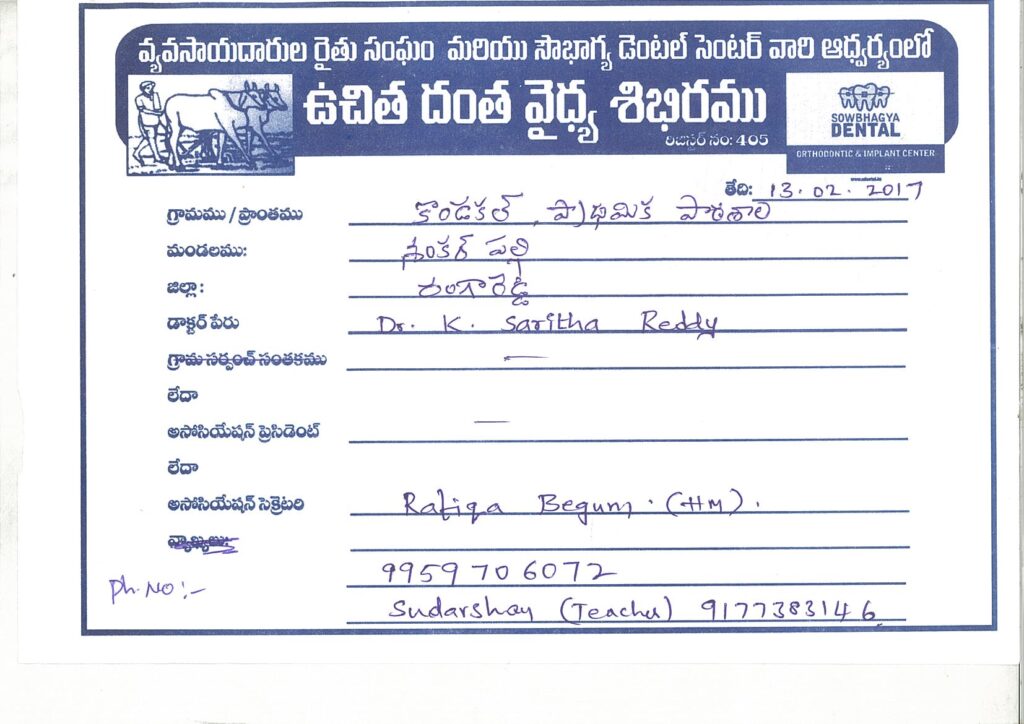 వ్యవసాయదారుల రైతు సంఘం మరియు సౌభాగ్య డెంటల్ సెంటర్ వారి ఆధ్వర్యంలో
ఉచిత దంత వైద్య శిభిరము
రిజిస్టర్ నం: 405
SOWBHAGYA
DENTAL
ORTHODONTIC & IMPLANT CENTER
తేది: 13.02.2017
గ్రామము / ప్రాంతము కొండకల్ , ప్రాధమిక పాఠశాల
మండలము: శంకర్ పల్లి
జిల్లా : రంగారెడ్డి
డాక్టర్ పేరు Dr. K. Saritha Reddy
గ్రామ సర్పంచ్ సంతకము —
లేదా
అసోసియేషన్ ప్రెసిడెంట్ —
లేదా
అసోసియేషన్ సెక్రెటరి Rafiqa Begum . (HM) .
9959706072
Ph. No :-
Sudarshan (Teacher) 9177383146